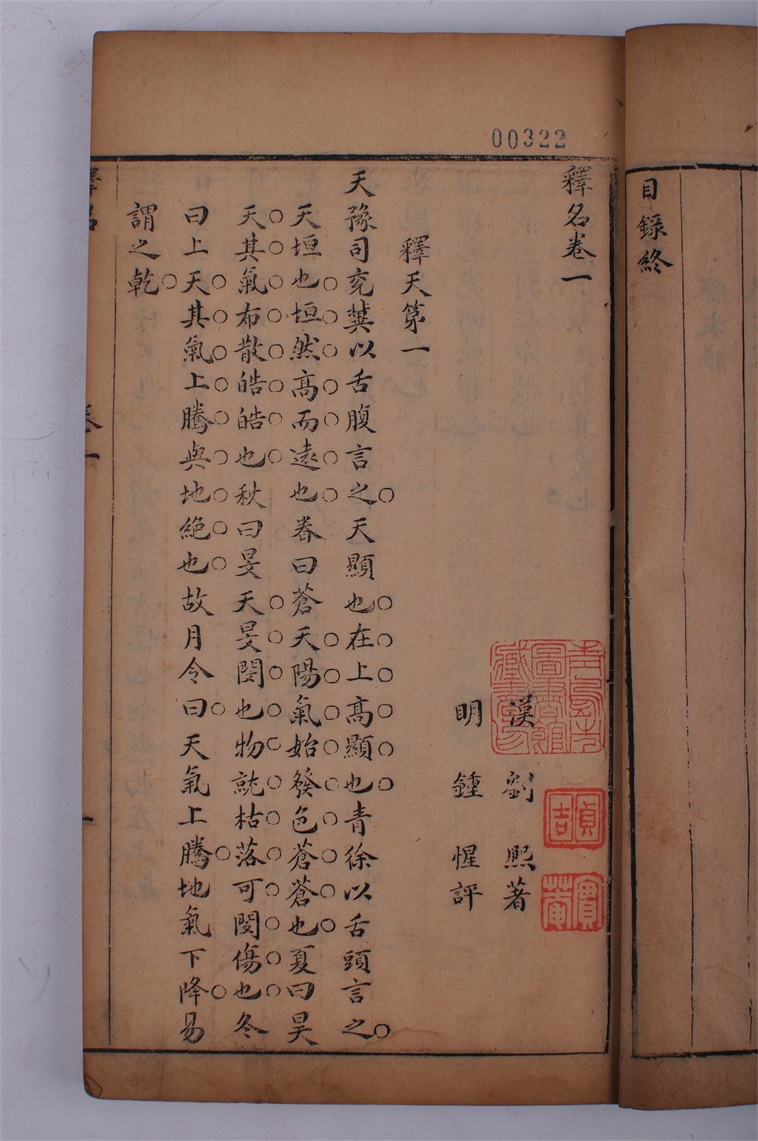 00322
目錄終
釋名卷一
漢 劉熙著
明 鍾惺評
釋天第一
天豫司兗冀以舌腹言之天顯也在上髙顯也青徐以舌頭言之
天垣也垣然髙而遠也春曰蒼天陽氣始發色蒼蒼也夏曰昊
天其氣布散皓皓也秋曰旻天旻閔也物就枯落可閔傷也冬
曰上天其氣上騰與地絕也故月令曰天氣上騰地氣下降易
謂之乾
青島市圖書館藏書印
貞吉